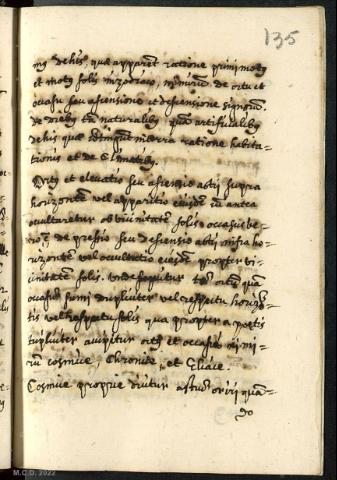 135
mus de his, quæ apparent ratione primi motus
et motus solis in zodiaco, nimirum de ortu et
occasu seu ascensione et descensione signorum,
de diebus tam naturalibus quam artificialibus
de his quæ contingunt in terra ratione habita-
tionis et de climatibus.
Ortus est elevatio seu ascensio astri supra
horizontem vel apparitio eiusdem cum antea
occultaretur ob vicinitatem solis. occasus ve-
ro est depressio seu descensio astri infra ho-
rizontem vel occultatio eiusdem propter vi-
cinitatem solis. unde sequitur tam ortum quam
occasum sumi dupliciter vel respectu horizon-
tis vel respectu solis qua propter a poetis
tripliciter accipitur ortus et occasus nimi-
rum cosmice, Chronice, et Eliace.
Cosmice proprie dicitur astrum oriri quan-
do
M.C.D. 2022